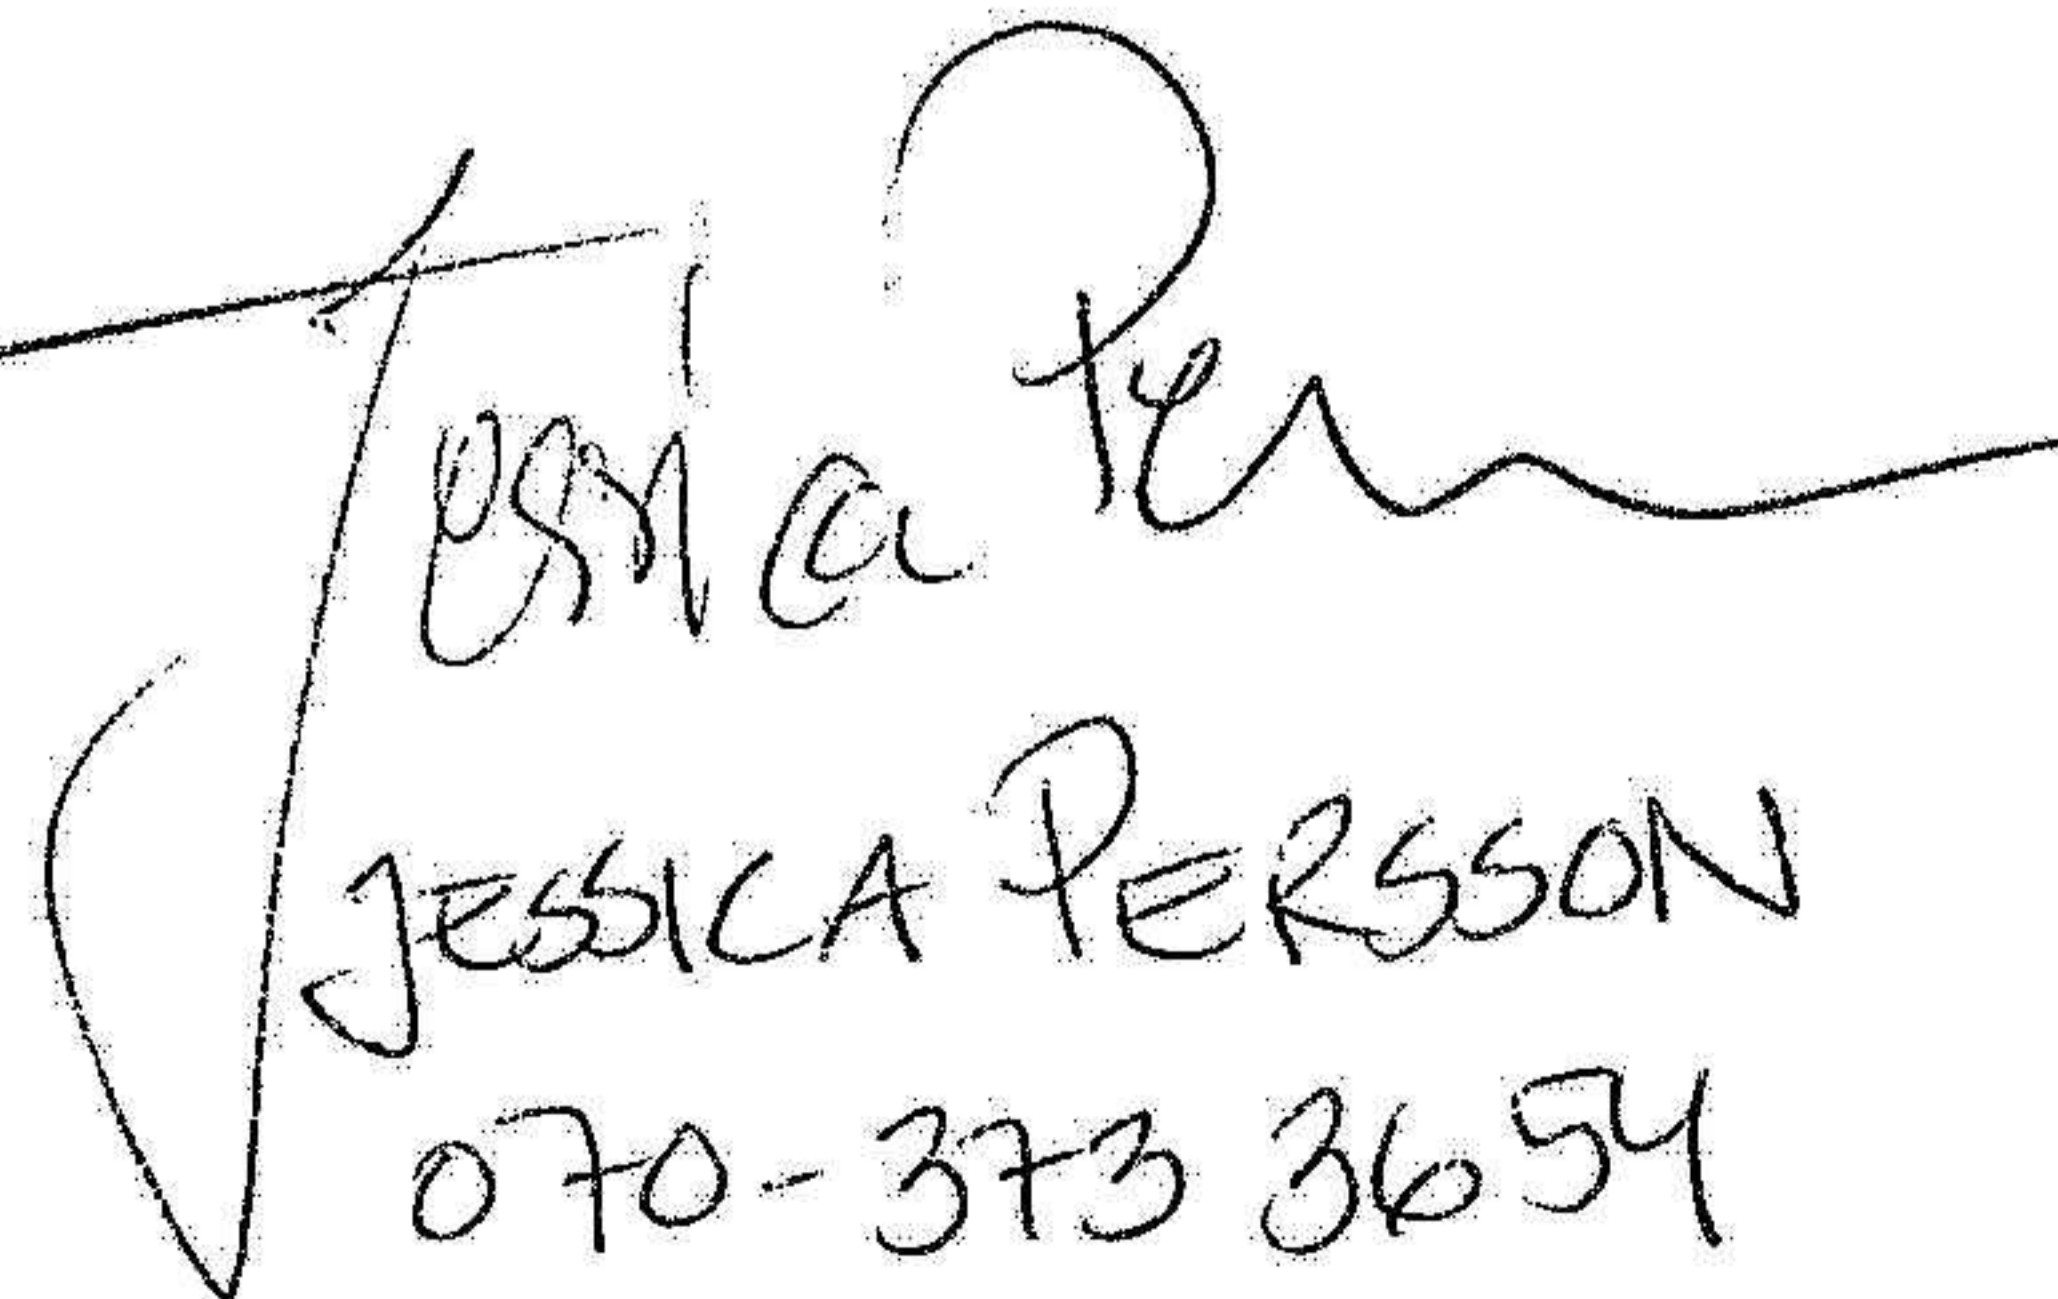 Jessica Pe
JESSICA PERSSON
070-373 3654